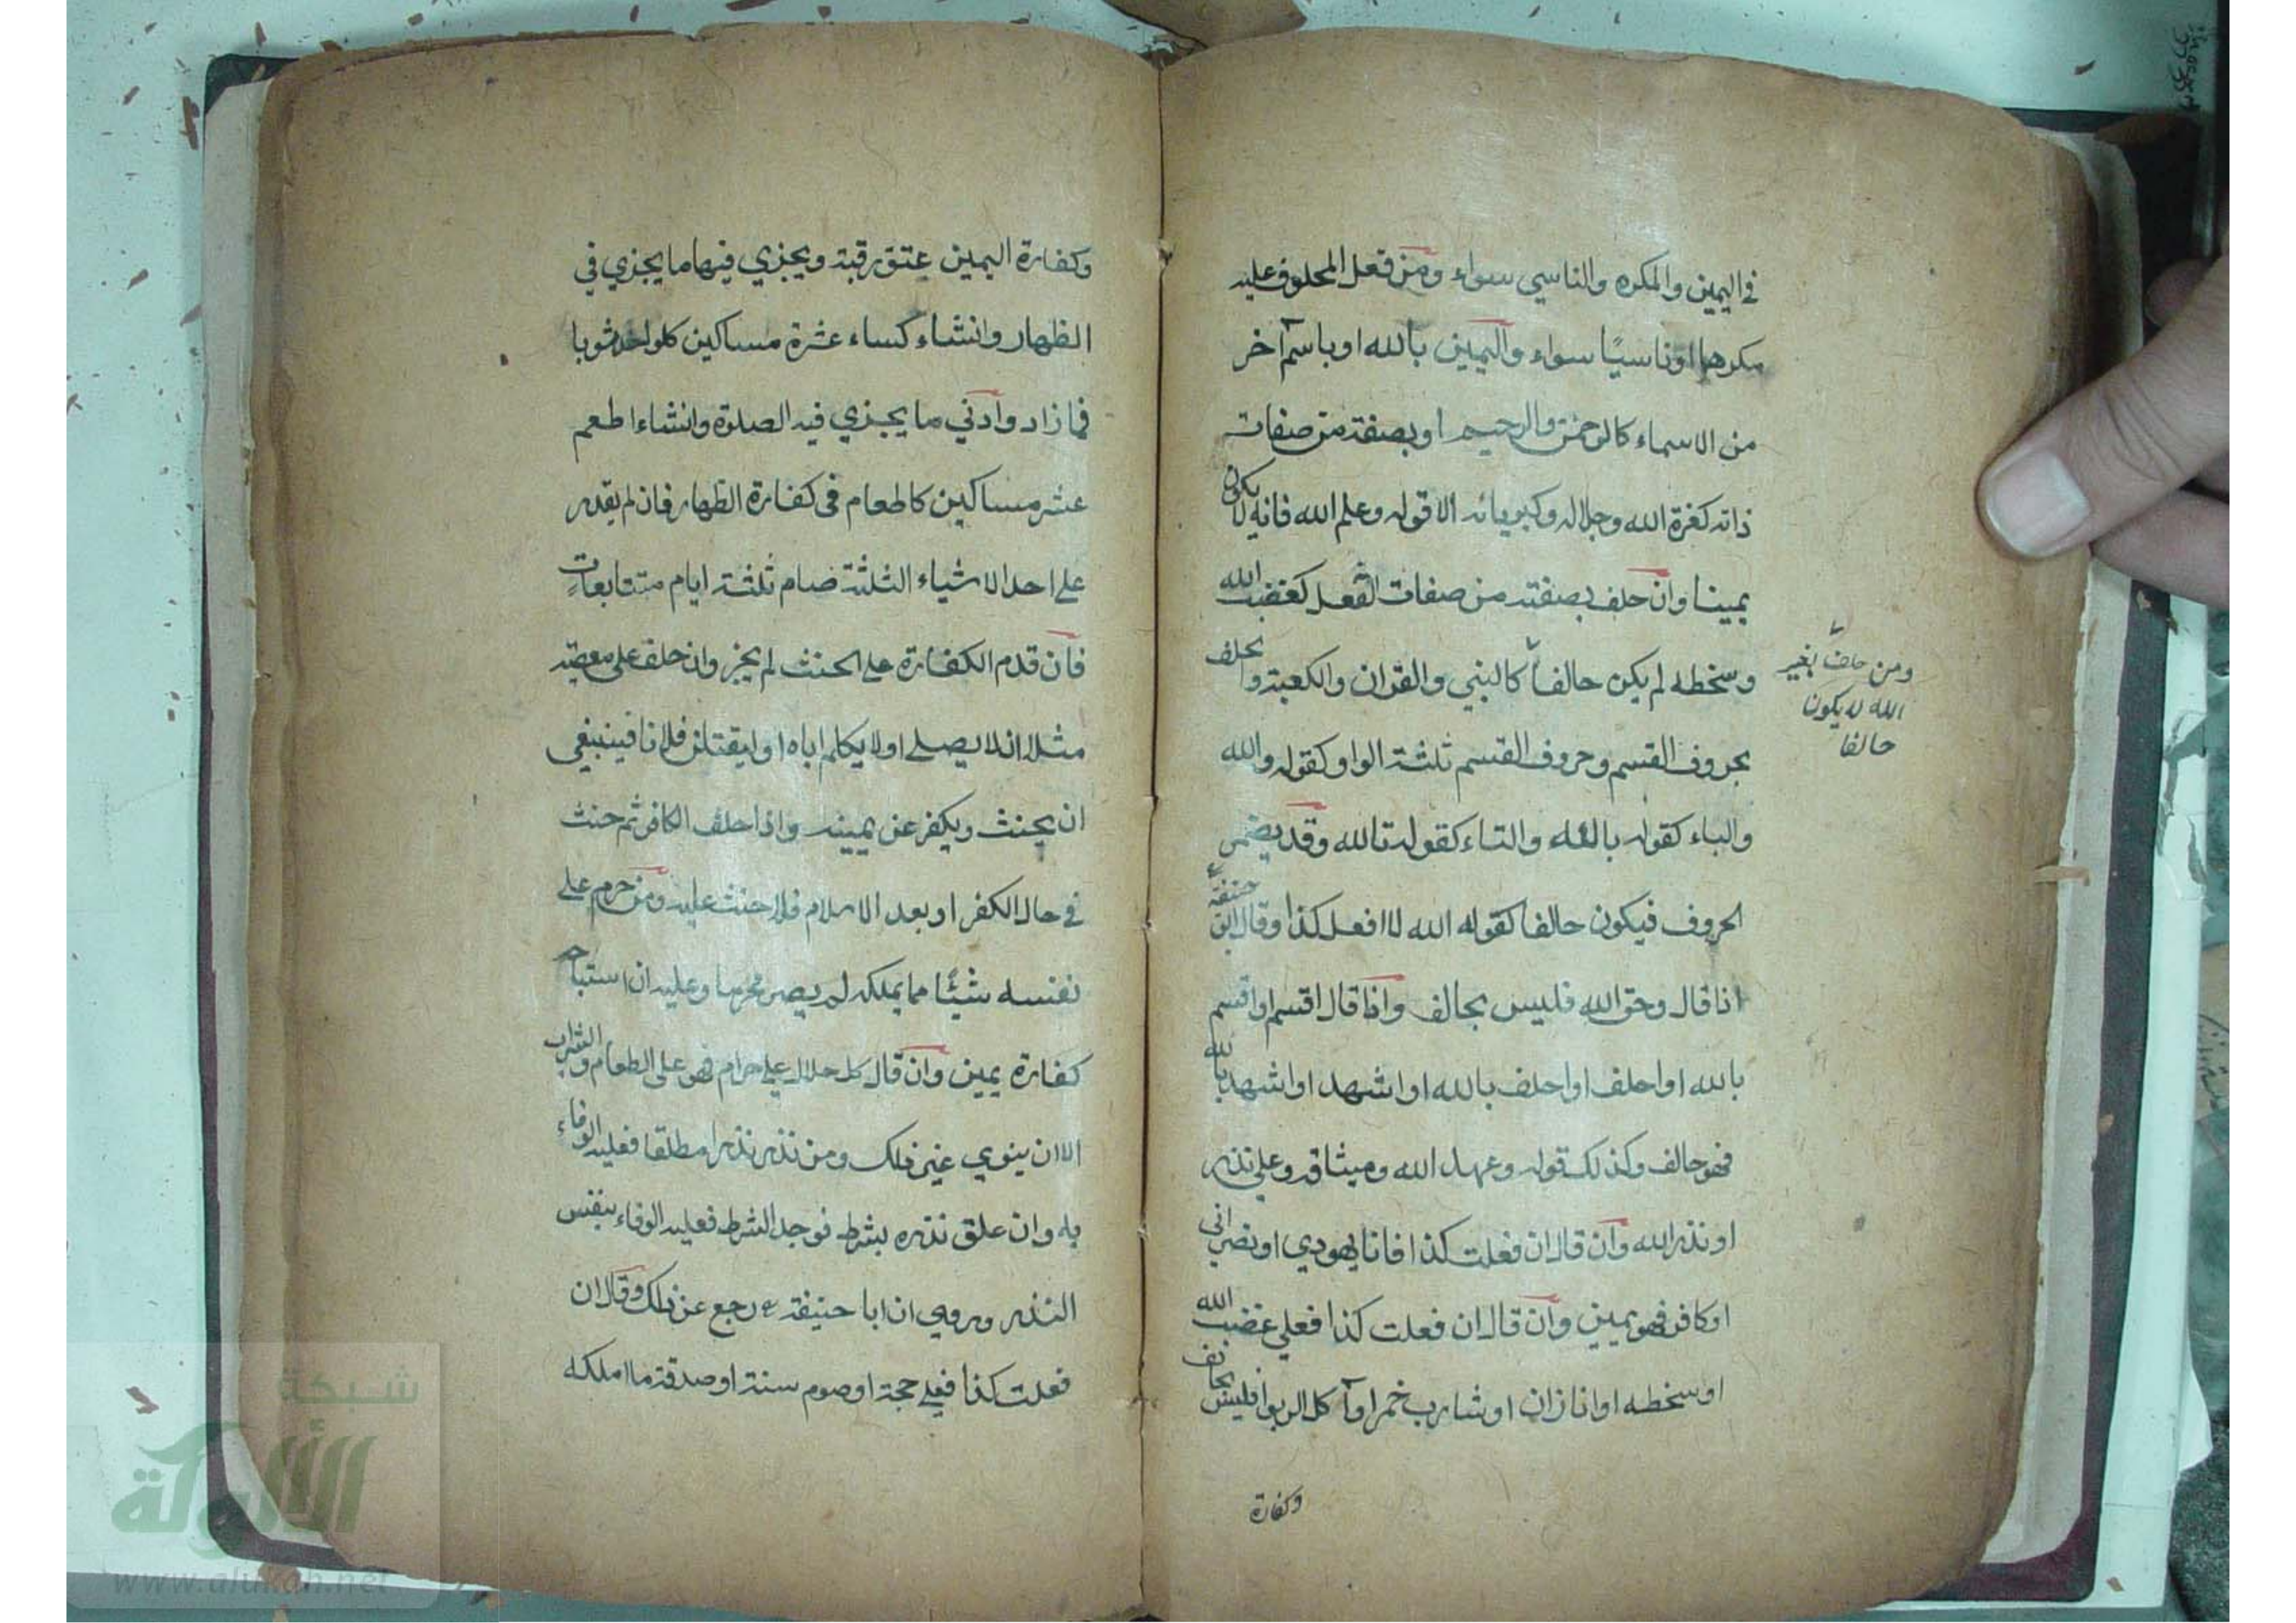 في اليمين والمكره والناسي سواء ومن فعل المحلوف عليه
مكرها اوناسيًا سواء واليمين بالله او باسم آخر
من الاسماء كالرحمن والرحيم او بصفة من صفات
ذاته كعزة الله وجلاله وكبريائه الا قوله وعلم الله فانه لا يكون
يمينا وان حلف بصفة من صفات الفعل كغضب الله
وسخطه لم يكن حالفا كالنبي والقران والكعبة والحلف
بحروف القسم وحروف القسم ثلثة الواو كقوله والله
والباء كقوله بالله والتاء كقوله تالله وقد يضمر
الحروف فيكون حالفا كقوله الله لا افعل كذا وقال ابو حنيفة
اذا قال وحق الله فليس بحالف واذا قال اقسم او اقسم
بالله او احلف او احلف بالله او اشهد او اشهد بالله
فهو حالف وكذلك قوله وعهد الله وميثاقه وعلي نذر
او نذر الله وان قال ان فعلت كذا فانا يهودي او نصراني
او كافر فهو يمين وان قال ان فعلت كذا فعلي غضب الله
او سخطه او انا زان او شارب خمر او آكل الربوا فليس بحالف
وكفارة
ومن حلف بغير
الله لا يكون
حالفا
وكفارة اليمين عتق رقبة ويجزي فيها ما يجزي في
الظهار وانشاء كساء عشرة مساكين كلواحد ثوبا
فما زاد وادني ما يجزي فيه الصلوة وانشاء اطعم
عشر مساكين كاطعام في كفارة الظهار فان لم يقدر
على احد الاشياء الثلثة صام ثلثة ايام متتابعات
فان قدم الكفارة على الحنث لم يجز وان حلف على معصية
مثلا ان لا يصلي او لا يكلم اباه او ليقتلن فلانا فينبغي
ان يحنث ويكفر عن يمينه واذا حلف الكافر ثم حنث
في حال الكفر او بعد الاسلام فلا حنث عليه ومن حرم على
نفسه شيئا مما يملكه لم يصر محرما وعليه ان استباحه
كفارة يمين وان قال كل حلال علي حرام فهو على الطعام والشراب
الا ان ينوي غير ذلك ومن نذر نذرا مطلقا فعليه الوفاء
به وان علق نذره بشرط فوجد الشرط فعليه الوفاء بنفس
النذر وروي ان ابا حنيفة رجع عن ذلك وقال ان
فعلت كذا فعلي حجة او صوم سنة او صدقة ما املكه
شبكة
الألوكة
www.alukah.net